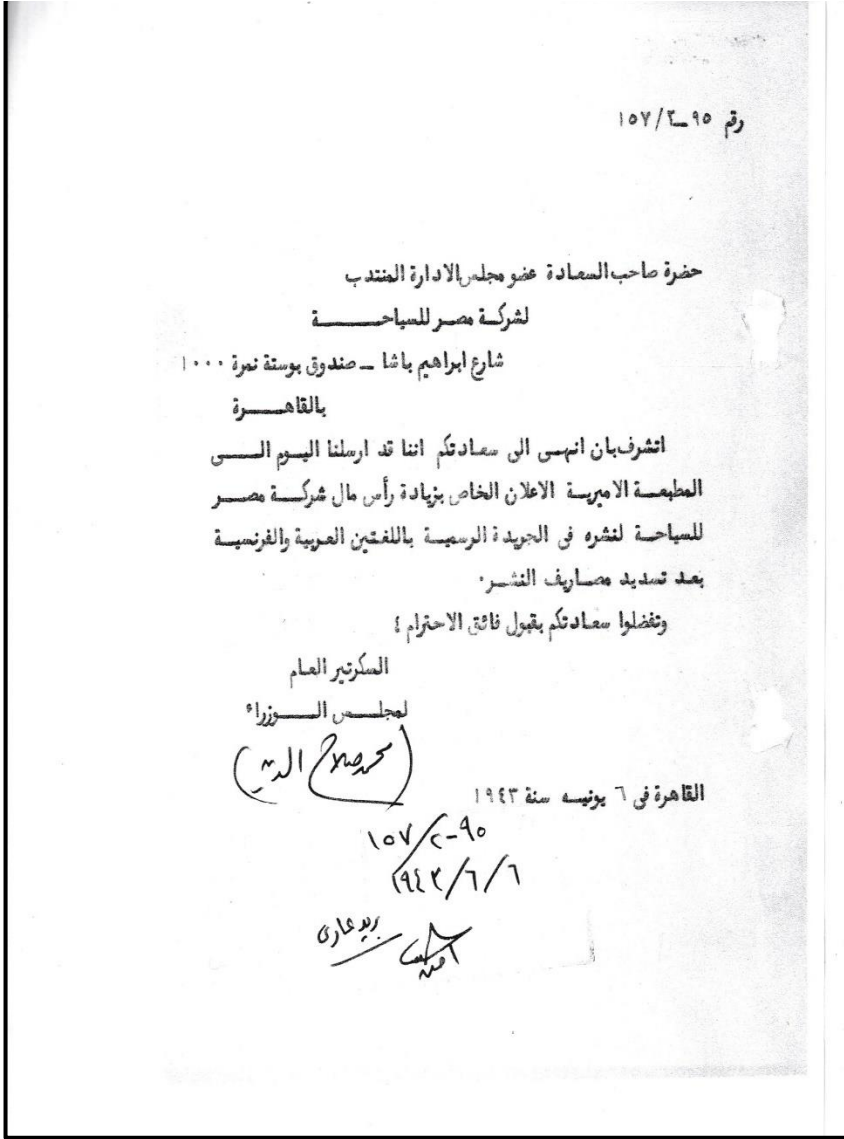 رقم ٩٥ــ٢/١٥٧
حضرة صاحب السعادة عضو مجلس الادارة المنتدب
لشركة مصر للسياحة
شارع ابراهيم باشا ــ صندوق بوستة نمرة ١٠٠٠
بالقاهرة
اتشرف بان انهى الى سعادتكم اننا قد ارسلنا اليوم الى
المطبعة الاميرية الاعلان الخاص بزيادة رأس مال شركة مصر
للسياحة لنشره فى الجريدة الرسمية باللغتين العربية والفرنسية
بعد تسديد مصاريف النشر٠
وتفضلوا سعادتكم بقبول فائق الاحترام ؛
السكرتير العام
لمجلس الوزراء
(محمد صلاح الدين)
القاهرة فى ٦ يونيسه سنة ١٩٤٣
٩٥-٢/١٥٧
٦/٦/١٩٤٣
بريد عادى